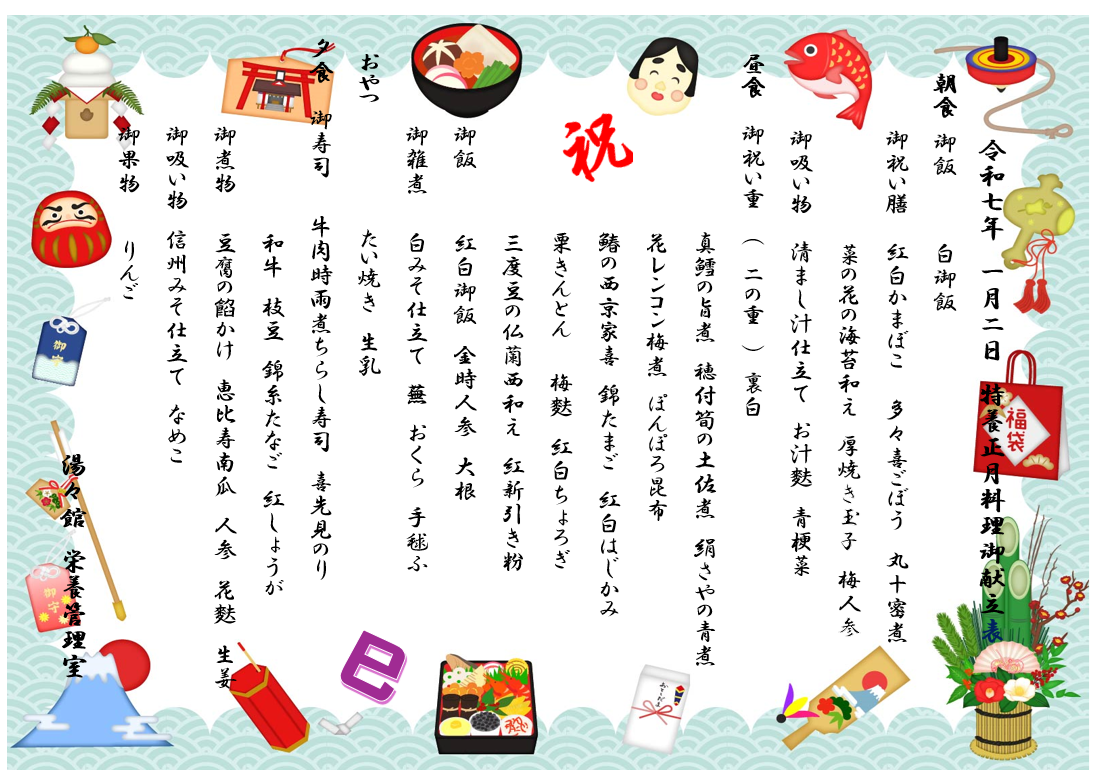 令和七年　一月二日　特養正月料理御献立表
朝食　御飯　白御飯
御祝い膳　紅白かまぼこ　多々喜ごぼう　丸十蜜煮
菜の花の海苔和え　厚焼き玉子　梅人参
御吸い物　清まし汁仕立て　お汁麩　青梗菜
昼食　御祝い重　（　二の重　）　裏白
真鱈の旨煮　穂付筍の土佐煮　絹さやの青煮
花レンコン梅煮　ぽんぽろ昆布
鰆の西京家喜　錦たまご　紅白はじかみ
栗きんとん　梅麩　紅白ちょろぎ
三度豆の仏蘭西和え　紅新引き粉
御飯　紅白御飯　金時人参　大根
御雑煮　白みそ仕立て　蕪　おくら　手毬ふ
おやつ　たい焼き　生乳
夕食　御寿司　牛肉時雨煮ちらし寿司　喜先見のり
和牛　枝豆　錦糸たなご　紅しょうが
御煮物　豆腐の餡かけ　恵比寿南瓜　人参　花麩　生姜
御吸い物　信州みそ仕立て　なめこ
御果物　りんご
湯々館　栄養管理室
祝
福袋
御守
御守
おとしだま
e